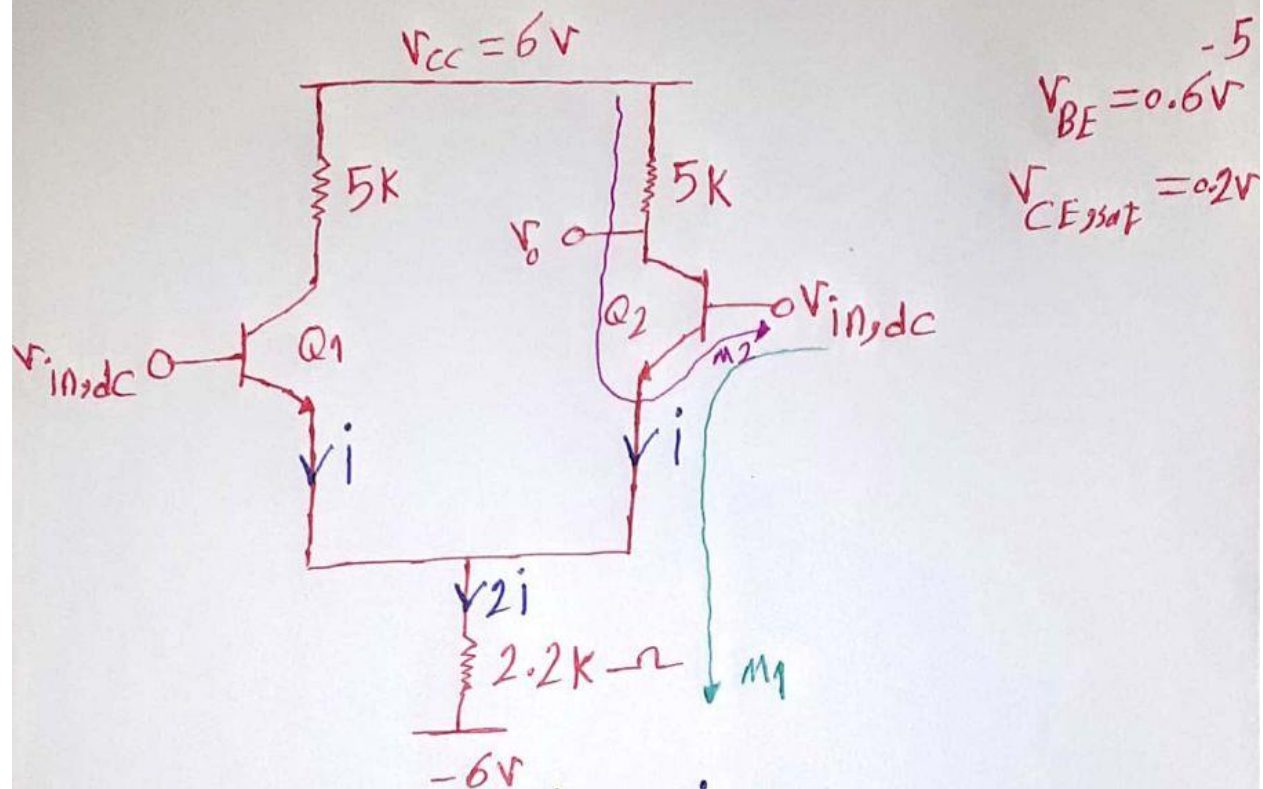 VCC = 6V
-5
VBE = 0.6V
VCE,sat = 0.2V
5K
5K
Vo
Q1
Q2
Vin,dc
Vin,dc
M2
i
i
2i
2.2K Ω
M1
-6V